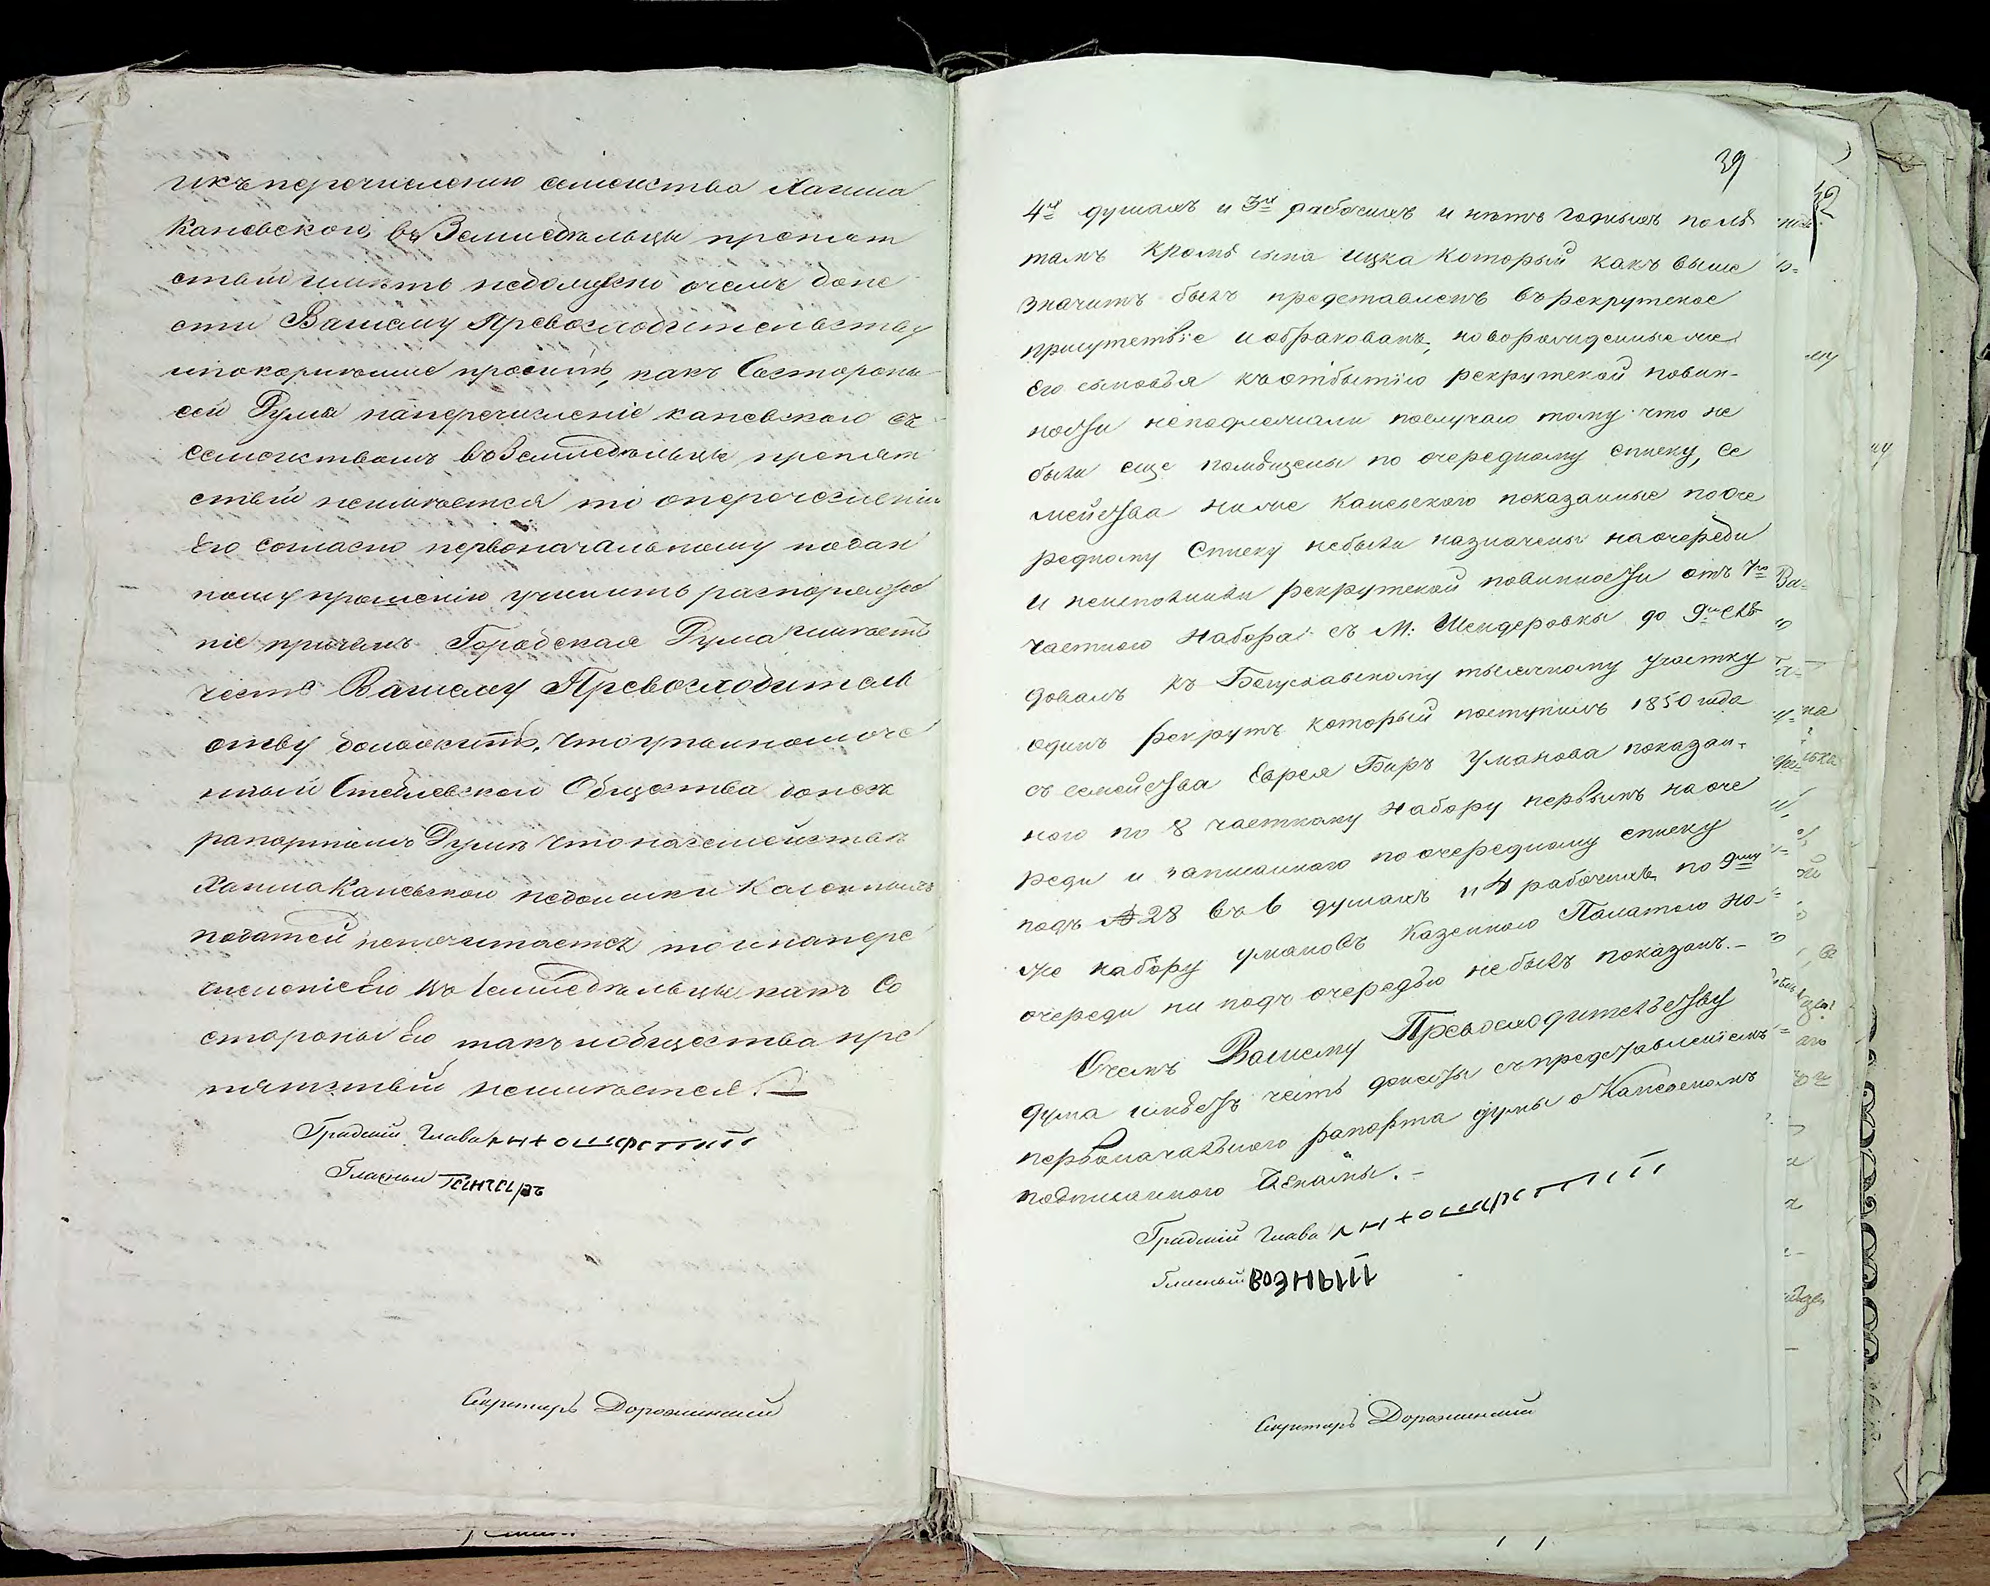 икъ перечислению семейства Хаима
Каневского, въ Земледельцы препят
ствий иметь недолжно очемъ доне
сти Вашему Превосходительству
ипокорнейше просить, какъ Состороны
сей Думы наперечисленіе каневского съ
семействомъ въ Земледельцы препят
ствий неимеется то оперечисленіи
Его согласно первоначальному подан
ному прошенію учинить распоряже
ніе причемъ Городская Дума имеетъ
честь Вашему Превосходитель
ству доложить, что уполномоче
нный Стеблевской Общества донесъ
рапортомъ Думе что на семействе
Хаима Каневского недоимки казенныхъ
податей несчитается то и напере
численіе Его въ Земледельцы какъ Со
стороны Его такъ и общества пре
пятствій неимеется.
Градскій Глава
Гласный
Секретарь Дорожинскій
39
4хъ душахъ и 3хъ рабочихъ и нетъ годныхъ поле
тамъ кроме сына Ицка который какъ выше
значитъ былъ представленъ въ рекрутское
присутствіе и обракованъ, новорожденные же
Его сыновья къ отбытію рекрутской повин-
ности неподлежали послучаю тому что не
были еще помещены по очередному списку, Се
мейства ниже Каневского показанные по оче
редному Списку небыли назначены на очереди
и неисполнили рекрутской повинности отъ 7го
частного Набора съ М: Шендеровки до 9
къ Богуславскому тысячному участку
одинъ рекрутъ который поступилъ 1850 года
съ семейства Еврея Беръ Уманова показан-
ного по 8 частному Набору первымъ на оче
реди и записанного по очередному списку
подъ № 28 въ 6 душахъ и 4 рабочихъ, по 9му
же набору умановъ Казенною Палатою на
очереди ни подъ очередью не былъ показанъ.-
Очемъ Вашему Превосходительству
дума имеетъ честь донести съ представленіемъ
первоначального рапорта думы о Каневскомъ
подписанного
Градскій Глава
Гласный
Секретарь Дорожинскій